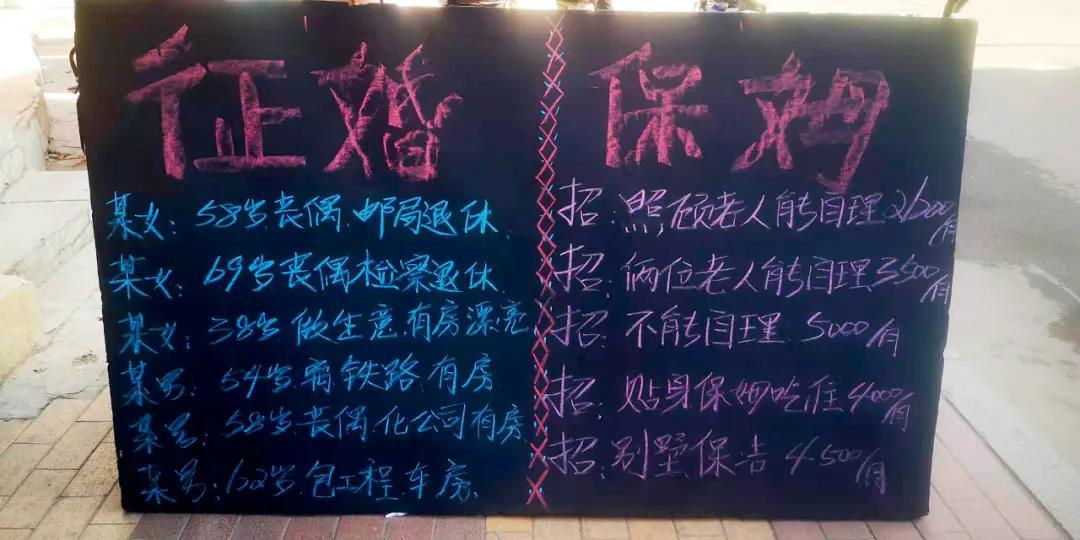 征婚
某女:58岁丧偶.邮局退休.
某女:69岁丧偶.检察退休.
某女:38岁.做生意.有房漂亮
某男:54岁.离.铁路.有房
某男:58岁.丧偶.化公司有房
某男:62岁.包工程.车房.
保姆
招:照顾老人能自理2600/月
招:俩位老人能自理3500/月
招:不能自理.5000/月
招:贴身保姆吃住4000/月
招:别墅保洁4500/月